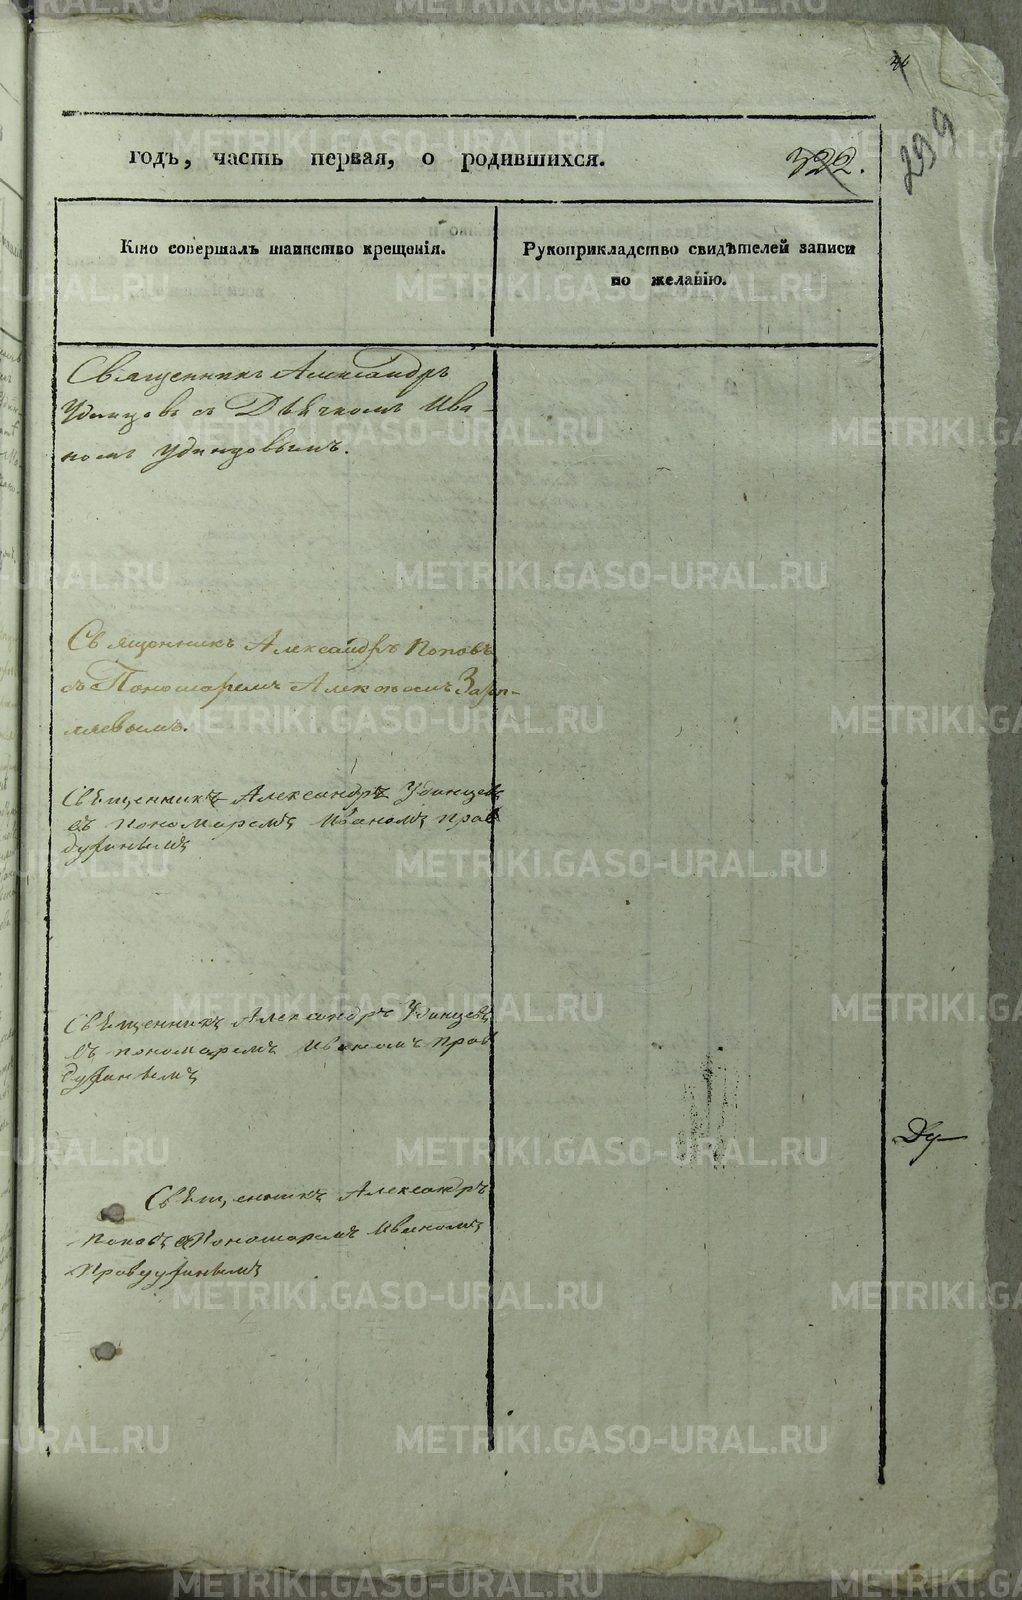 299
годъ, часть первая, о родившихся. 322.
Кто совершалъ таинство крещенія.
Рукоприкладство свидѣтелей записи
по желанію.
Священникъ Александръ
Удинцовъ съ Дьячкомъ Ива-
номъ Удинцовымъ.
Священникъ Александръ Поповъ
съ Пономаремъ
Священникъ Александръ Удинцевъ
съ пономаремъ Иваномъ Прав
духинымъ
Священникъ Александръ Удинцевъ
съ пономаремъ Иваномъ Прав
духинымъ
Священникъ Александръ
Поповъ с Пономаремъ Иваномъ
Правдухинымъ
METRIKI.GASO-URAL.RU